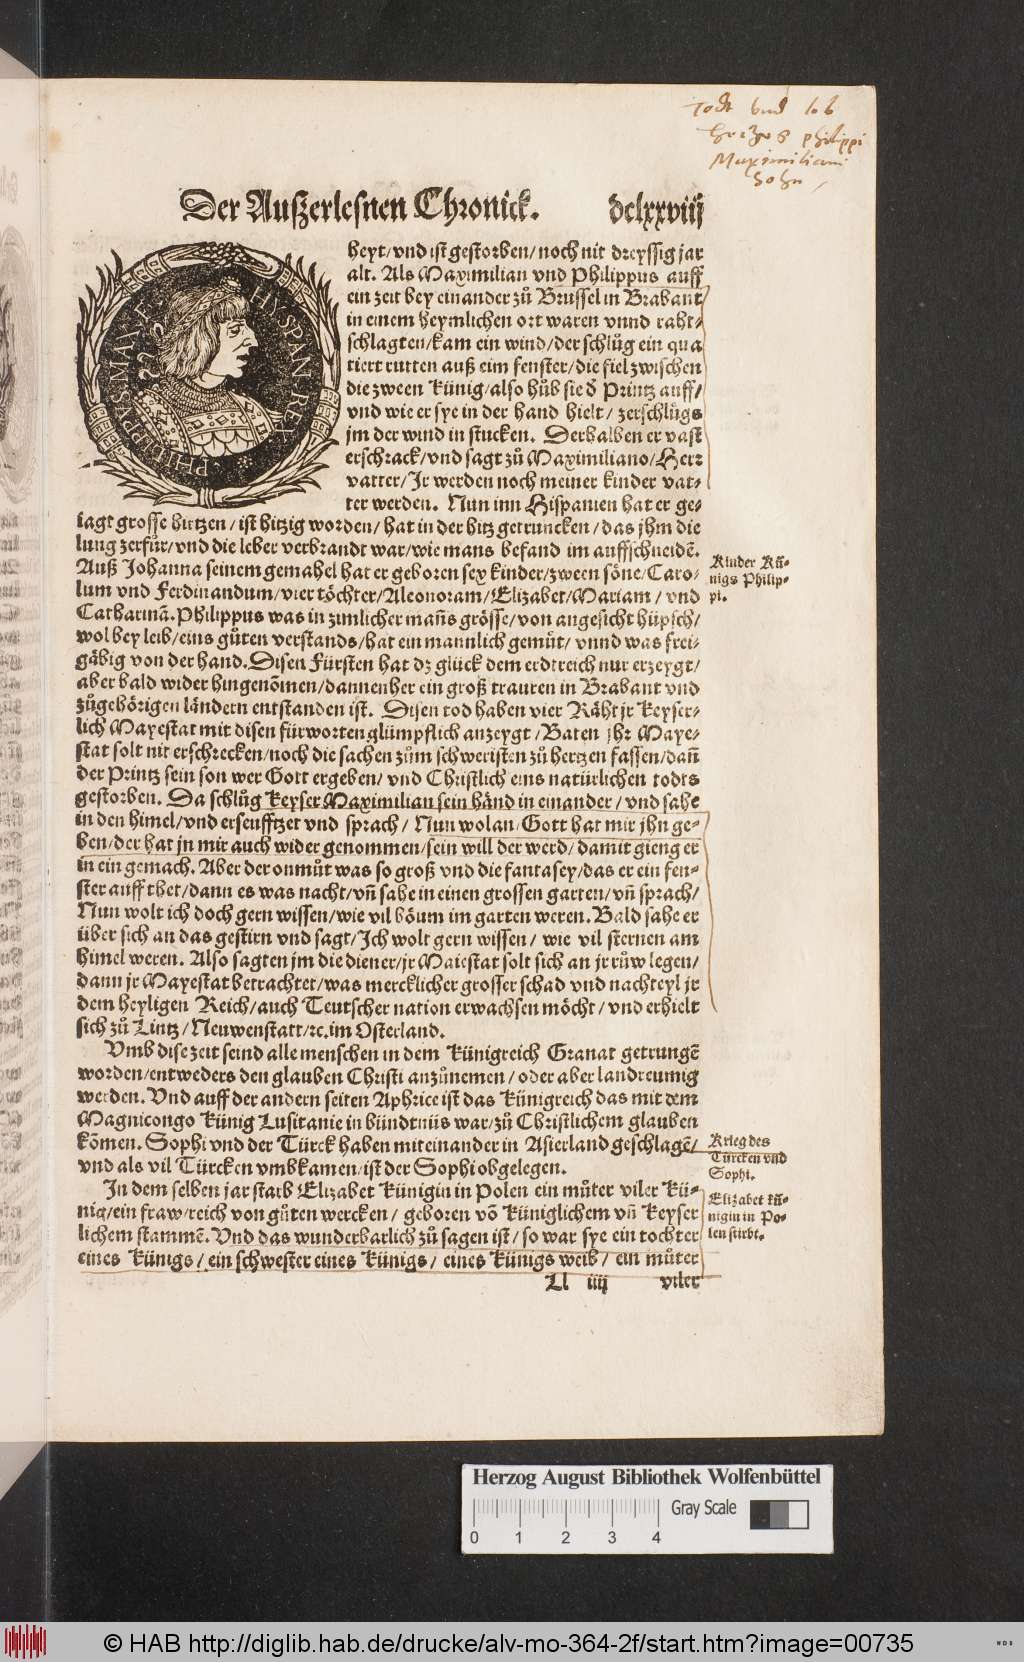 Todt vnd lob
Hertzog philippi
Maximiliani
Sohn
Der Außerlesnen Chronick. dclxxviij
PHILIPPVS MAX F HYSPAN REX
heyt/vnd ist gestorben/noch nit dreyssig jar
alt. Als Maximilian vnd Philippus auff
ein zeit bey einander zů Brussel in Brabant/
in einem heymlichen ort waren vnnd raht⸗
schlagten/kam ein wind/der schlůg ein qua
tiert rutten auß eim fenster/die fiel zwischen
die zween Künig/also hůb sie d̕ Printz auff/
vnd wie er sye in der hand hielt/ zerschlůgs
jm der wind in stucken. Derhalben er vast
erschrack/vnd sagt zů Maximiliano/Herr
vatter/Jr werden noch meiner kinder vat⸗
ter werden. Nun inn Hispanien hat er ge⸗
iagt grosse hirtzen/ist hitzig worden/hat in der hitz getruncken/das jhm die
lung zerfůr/vnd die leber verbrandt war/wie mans befand im auffschneidẽ.
Auß Johanna seinem gemahel hat er geboren sex kinder/zween söne/Caro⸗
lum vnd Ferdinandum/vier töchter/Aleonoram/Elizabet/Mariam/ vnd
Catharinã. Philippus was in zimlicher mañs grösse/von angesicht hüpsch/
wol bey leib/eins gůten verstands/hat ein mannlich gemůt/ vnnd was frei⸗
gäbig von der hand. Disen Fürsten hat dz glück dem erdtreich nur erzeygt/
aber bald wider hingenõmen/dannenher ein groß trauren in Brabant vnd
zůgehörigen ländern entstanden ist. Disen tod haben vier Räht jr Keyser⸗
lich Mayestat mit disen fürworten glümpflich anzeygt/Baten jhr Maye⸗
stat solt nit erschrecken/noch die sachen zům schweristen zů hertzen fassen/dañ
der Printz sein son wer Gott ergeben/ vnd Christlich eins natürlichen todts
gestorben. Da schlůg Keyser Maximilian sein händ in einander/ vnd sahe
in den himel/vnd erseufftzet vnd sprach/ Nun wolan/Gott hat mir jhn ge⸗
ben/der hat jn mir auch wider genommen/sein will der werd/damit gieng er
in ein gemach. Aber der onmůt was so groß vnd die fantasey/das er ein fen⸗
ster auff thet/dann es was nacht/vñ sahe in einen grossen garten/vñ sprach/
Nun wolt ich doch gern wissen/wie vil böum im garten weren. Bald sahe er
über sich an das gestirn vnd sagt/Ich wolt gern wissen/ wie vil sternen am
himel weren. Also sagten jm die diener/jr Maiestat solt sich an jr růw legen/
dann jr Mayestat betrachtet/was mercklicher grosser schad vnd nachteyl jr
dem heyligen Reich/auch Teutscher nation erwachsen möcht/ vnd erhielt
sich zů Lintz/Neuwenstatt/rc. im Osterland.
Vmb dise zeit seind alle menschen in dem Künigreich Granat getrungẽ
worden/entweders den glauben Christi anzůnemen/oder aber landreumig
werden. Vnd auff der andern seiten Aphrice ist das Künigreich das mit dem
Magnicongo Künig Lusitanie in bündtniis war/zů Christlichem glauben
kõmen. Sophi vnd der Türck haben miteinander in Asierland geschlagẽ/
vnd als vil Türcken vmbkamen/ist der Sophi obgelegen.
In dem selben jar starb Elizabet Künigin in Polen ein můter viler Kü⸗
nig/ein fraw/reich von gůten wercken/ geboren võ Küniglichem vñ Keyser
lichem stammẽ. Vnd das wunderbarlich zů sagen ist/so war sye ein tochter
eines Künigs/ein schwester eines Künigs/ eines Künigs weib/ ein můter
Ll iiij viler
Kinder Kü⸗
nigs Philip⸗
pi.
Krieg des
Türcken vnd
Sophi.
Elizabet kü⸗
nigin in Po⸗
len stirbt.
Herzog August Bibliothek Wolfenbüttel
Gray Scale
0 1 2 3 4
© HAB http://diglib.hab.de/drucke/alv-mo-364-2f/start.htm?image=00735